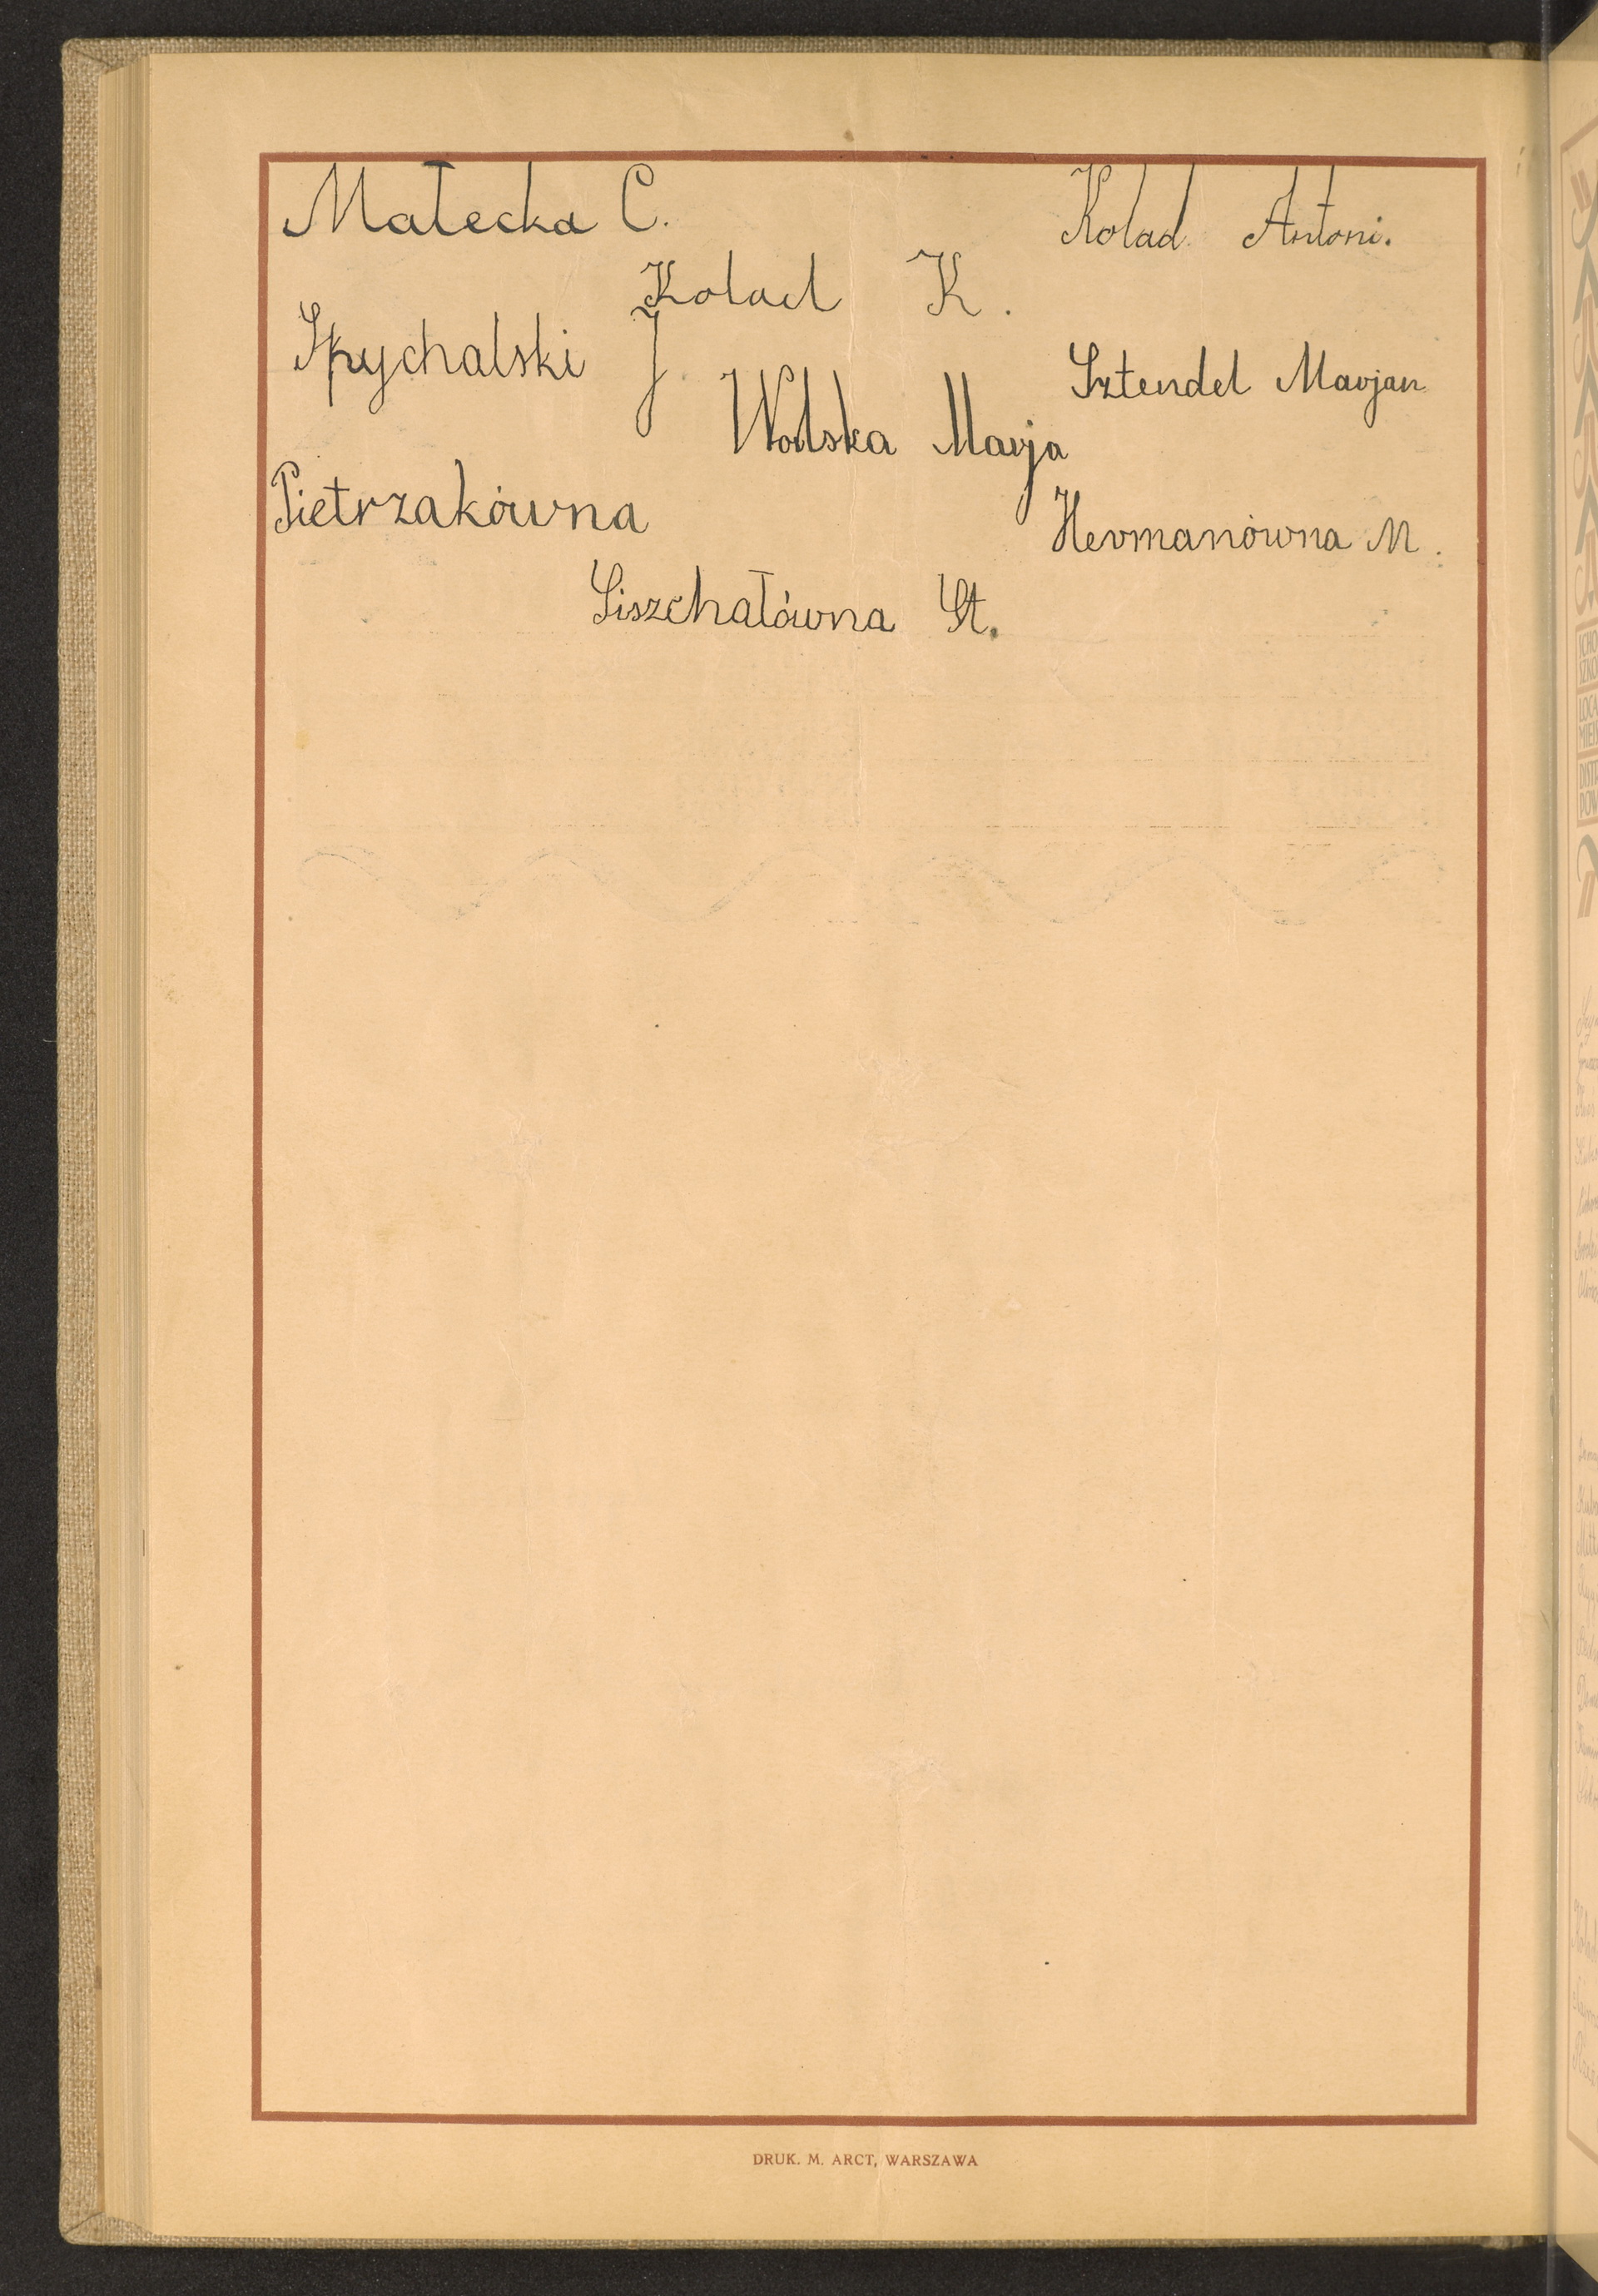 Małecka C.
Kolad Antoni.
Kolad K.
Spychalski J.
Sztendel Marjan
Wolska Marja
Pietrzakówna
Hermanówna M.
Siszchałówna St.
DRUK. M. ARCT, WARSZAWA